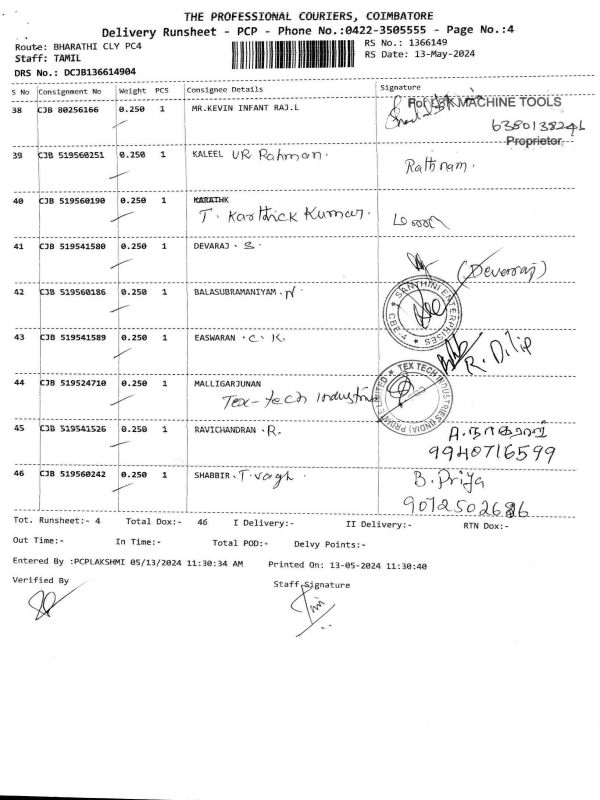 THE PROFESSIONAL COURIERS, COIMBATORE
Delivery Runsheet - PCP - Phone No.:0422-3505555 - Page No.:4
Route: BHARATHI CLY PC4
RS No.: 1366149
Staff: TAMIL
RS Date: 13-May-2024
DRS No.: DCJB136614904
S No Consignment No Weight PCS Consignee Details Signature
38 CJB 80256166 0.250 1 MR.KEVIN INFANT RAJ.L
MACHINE TOOLS
Proprietor
39 CJB 519560251 0.250 1 KALEEL UR Rahman. Rathnam.
40 CJB 519560190 0.250 1 KARATHK
T. Karthick Kumar.
41 CJB 519541580 0.250 1 DEVARAJ . S.
(Devaraj)
42 CJB 519560186 0.250 1 BALASUBRAMANIYAM . N
SANTHINI ENTERPRISES CBE-4
43 CJB 519541589 0.250 1 EASWARAN . C. K. R. Dilip
44 CJB 519524710 0.250 1 MALLIGARJUNAN
Tex-tech Industries
TEX TECH INDUSTRIES (INDIA) PRIVATE LIMITED
45 CJB 519541526 0.250 1 RAVICHANDRAN . R. A. நாகராஜ்
9940716599
46 CJB 519560242 0.250 1 SHABBIR . B. Priya
Tot. Runsheet:- 4 Total Dox:- 46 I Delivery:- II Delivery:- RTN Dox:-
Out Time:- In Time:- Total POD:- Delvy Points:-
Entered By :PCPLAKSHMI 05/13/2024 11:30:34 AM Printed On: 13-05-2024 11:30:40
Verified By Staff Signature